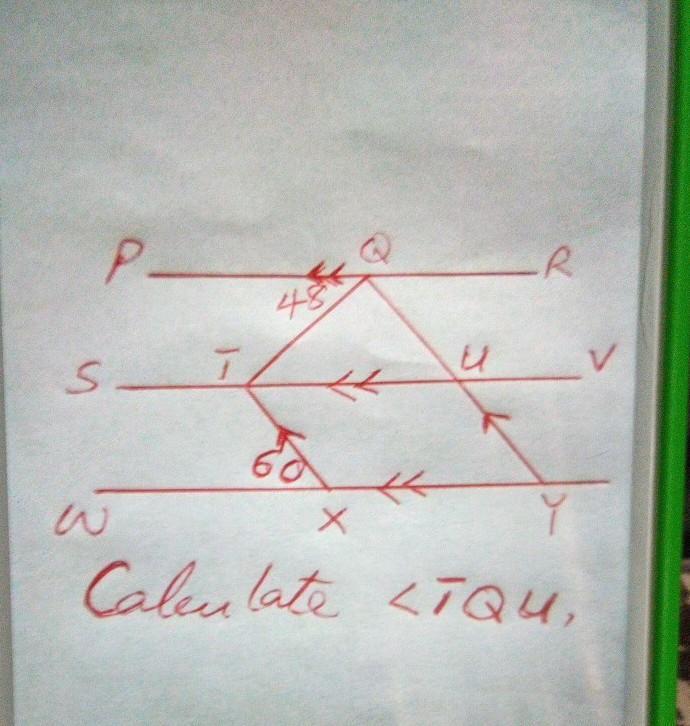 P Q R
48
S T U V
60
W X Y
Calculate <TQU,